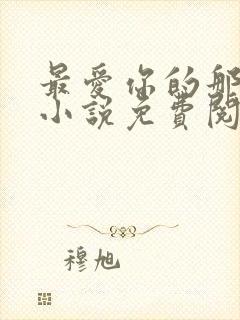 最爱你的那
小说免费阅
穆旭